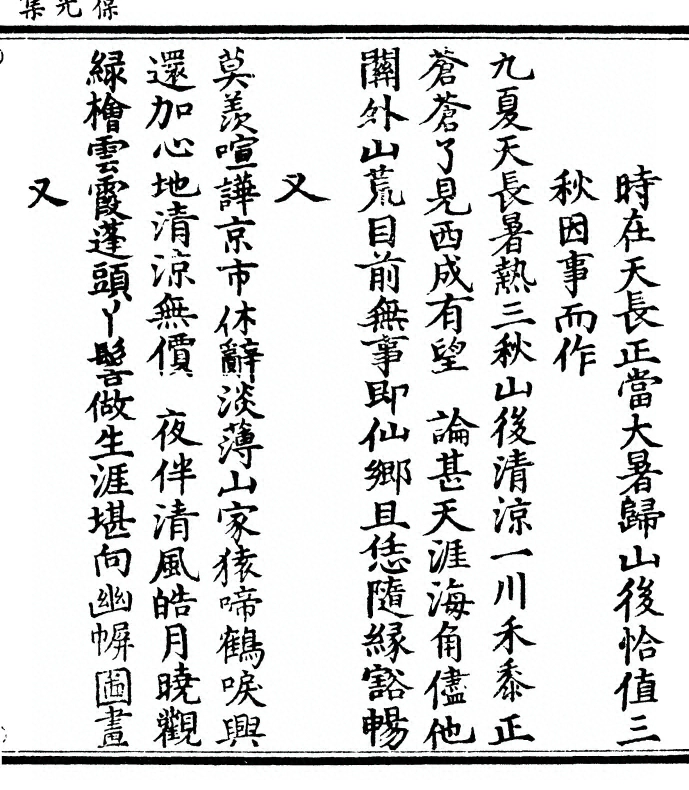 葆光集
時在天長正當大暑歸山後恰值三
秋因事而作
九夏天長暑熱三秋山後清涼一川禾黍正
蒼蒼了見西成有望　論甚天涯海角儘他
關外山荒目前無事即仙鄉且恁隨緣豁暢
又
莫羨喧譁京市休辭淡薄山家猿啼鶴唳興
還加心地清涼無價　夜伴清風皓月曉觀
緑檜雲霞蓬頭丫髻做生涯堪向幽幈圖畫
又